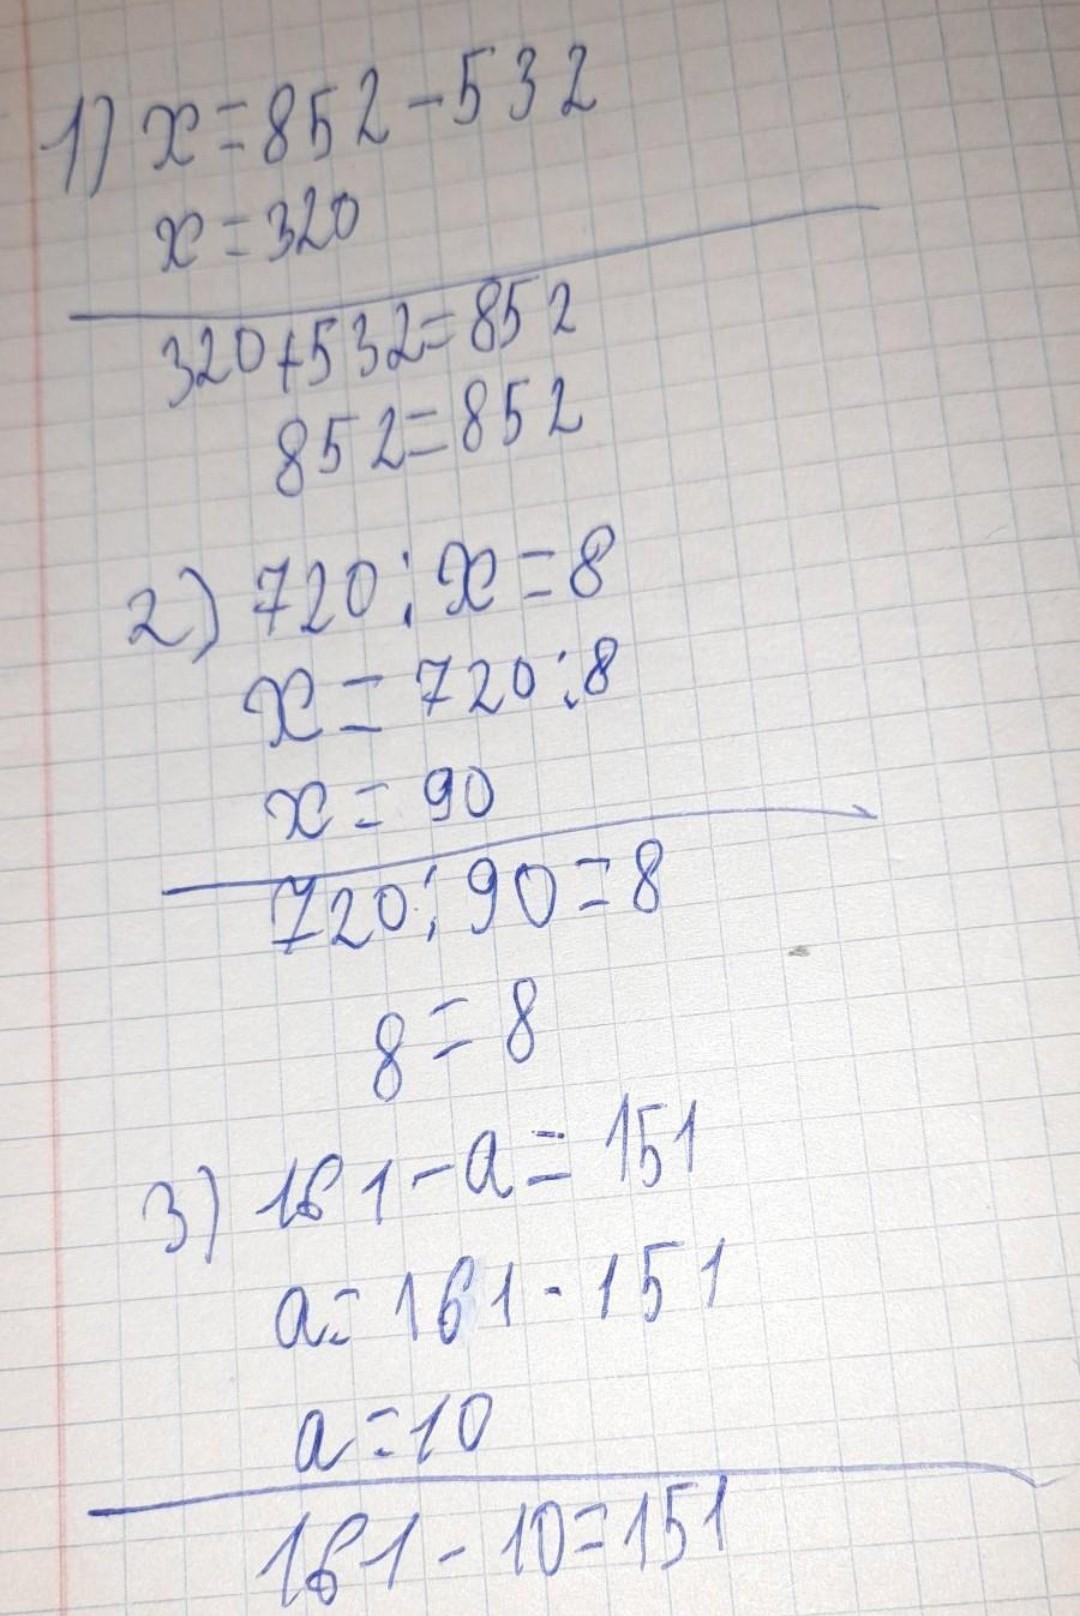 1) x=852-532
x=320
320+532=852
852=852
2) 720:x=8
x=720:8
x=90
720:90=8
8=8
3) 161-a=151
a=161-151
a=10
161-10=151